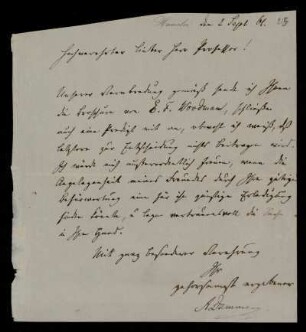 den 2 Sept 64.
Hochverehrter lieber Herr Professor!
Unserer Verabredung gemäß sende ich Ihnen
die Broschüre von E. S. Woodman, schließe
auch eine Predigt mit an, obwohl ich weiß, daß
letztere zur Entscheidung nichts beitragen wird.
Ich würde mich außerordentlich freuen, wenn die
Angelegenheit meines Freundes durch Ihre gütige
Befürwortung eine für ihn günstige Erledigung
finden könnte, u. legen vertrauensvoll die Sache
in Ihre Hand.
Mit ganz besonderer Verehrung
Ihr
gehorsamst ergebener